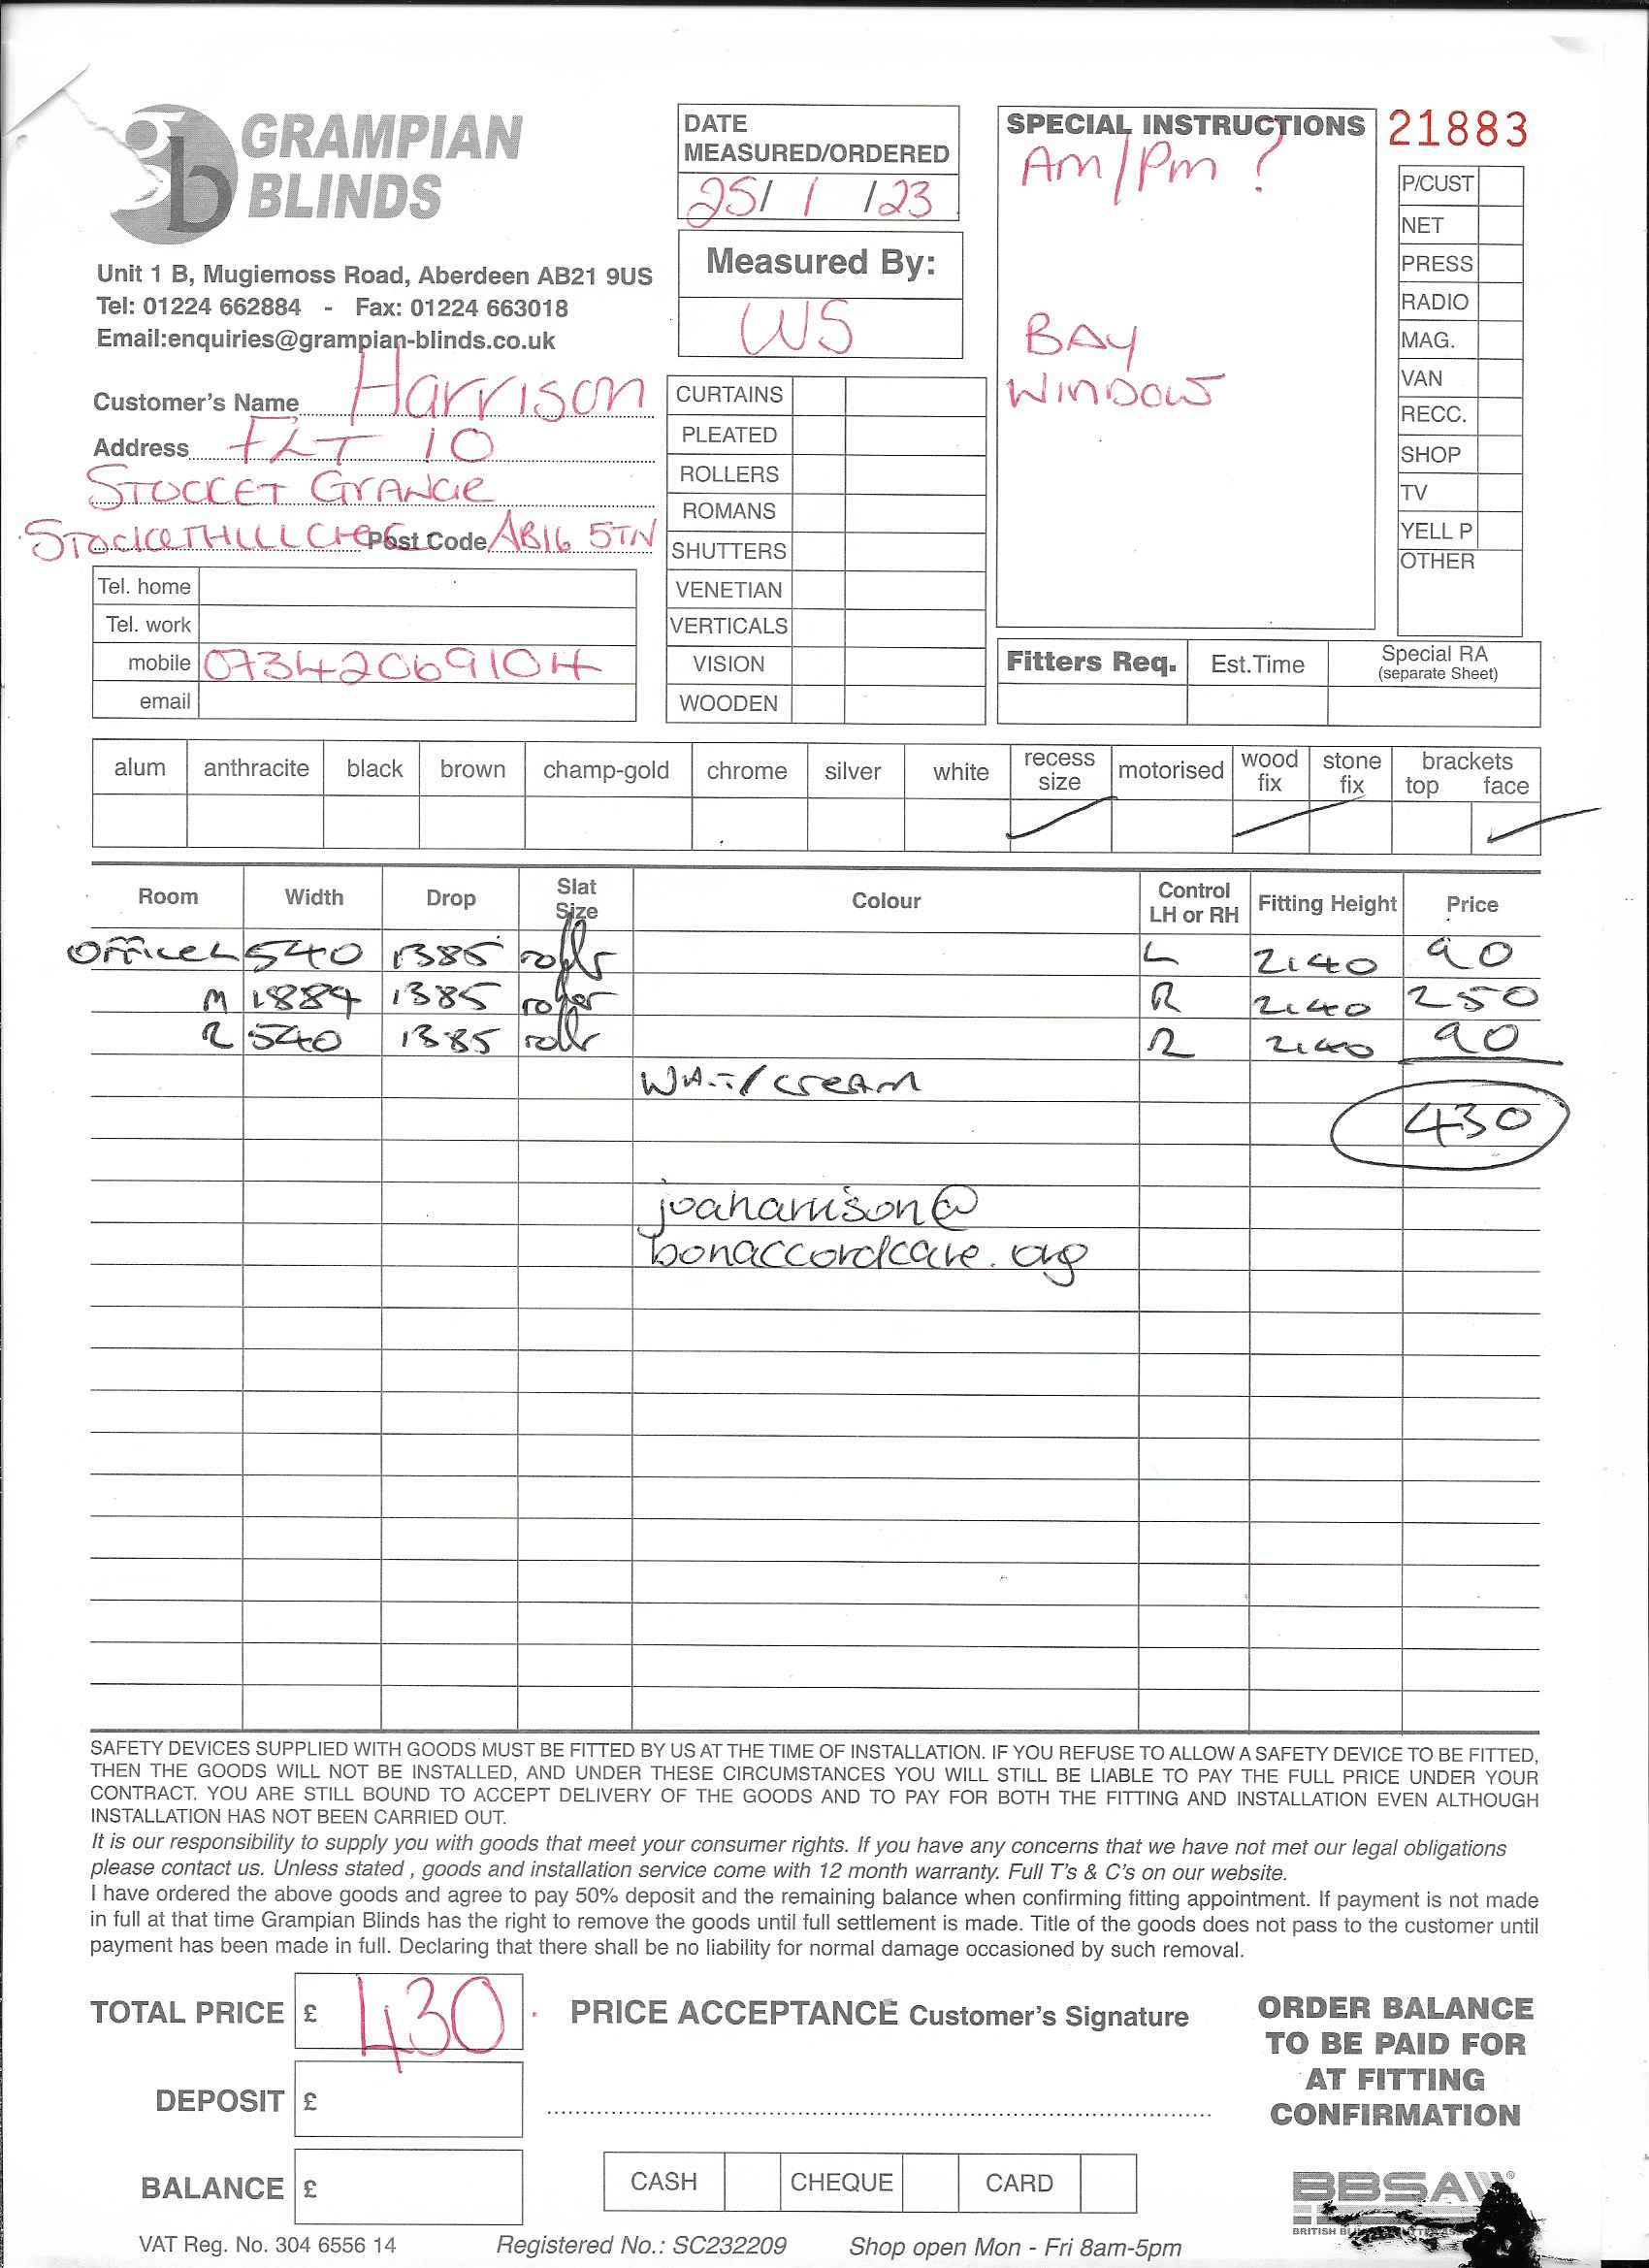 GRAMPIAN
BLINDS
Unit 1 B, Mugiemoss Road, Aberdeen AB21 9US
Tel: 01224 662884 - Fax: 01224 663018
Email:enquiries@grampian-blinds.co.uk
Customer's Name Harrison
Address FLT 10
STOCKET GRANGE
Post Code AB16 5TN
Tel. home
Tel. work
mobile 07342069104
email
DATE
MEASURED/ORDERED
25/ 1 /23
Measured By:
WS
CURTAINS
PLEATED
ROLLERS
ROMANS
SHUTTERS
VENETIAN
VERTICALS
VISION
WOODEN
SPECIAL INSTRUCTIONS
Am/Pm ?
BAY
WINDOW
21883
P/CUST
NET
PRESS
RADIO
MAG.
VAN
RECC.
SHOP
TV
YELL P
OTHER
Fitters Req. Est.Time Special RA
(separate Sheet)
alum anthracite black brown champ-gold chrome silver white recess size motorised wood fix stone fix brackets top face
Room Width Drop Slat Size Colour Control LH or RH Fitting Height Price
OFFICE L 540 1385 L 2140 90
M 1884 1385 roller R 2140 250
R 540 1385 R 2140 90
/ CREAM
430
joaharrison@
bonaccordcare.org
SAFETY DEVICES SUPPLIED WITH GOODS MUST BE FITTED BY US AT THE TIME OF INSTALLATION. IF YOU REFUSE TO ALLOW A SAFETY DEVICE TO BE FITTED,
THEN THE GOODS WILL NOT BE INSTALLED, AND UNDER THESE CIRCUMSTANCES YOU WILL STILL BE LIABLE TO PAY THE FULL PRICE UNDER YOUR
CONTRACT. YOU ARE STILL BOUND TO ACCEPT DELIVERY OF THE GOODS AND TO PAY FOR BOTH THE FITTING AND INSTALLATION EVEN ALTHOUGH
INSTALLATION HAS NOT BEEN CARRIED OUT.
It is our responsibility to supply you with goods that meet your consumer rights. If you have any concerns that we have not met our legal obligations
please contact us. Unless stated , goods and installation service come with 12 month warranty. Full T's & C's on our website.
I have ordered the above goods and agree to pay 50% deposit and the remaining balance when confirming fitting appointment. If payment is not made
in full at that time Grampian Blinds has the right to remove the goods until full settlement is made. Title of the goods does not pass to the customer until
payment has been made in full. Declaring that there shall be no liability for normal damage occasioned by such removal.
TOTAL PRICE £ 430
DEPOSIT £
BALANCE £
PRICE ACCEPTANCE Customer's Signature
CASH CHEQUE CARD
ORDER BALANCE
TO BE PAID FOR
AT FITTING
CONFIRMATION
BBSA
BRITISH
VAT Reg. No. 304 6556 14 Registered No.: SC232209 Shop open Mon - Fri 8am-5pm